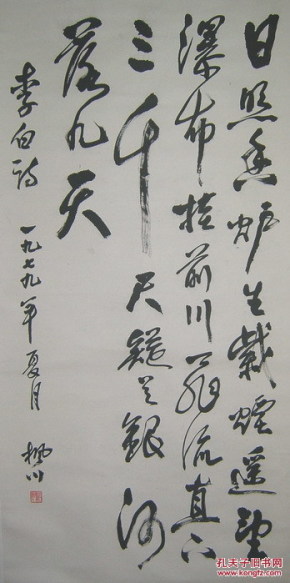 日照香炉生紫煙遥望
瀑布挂前川飛流直下
三千尺疑是銀河
落九天
李白詩 一九七九年夏月 楓川
孔夫子旧书网